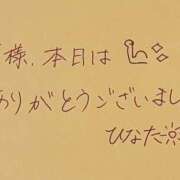 様、本日は
ありがとうございまし
ひなた